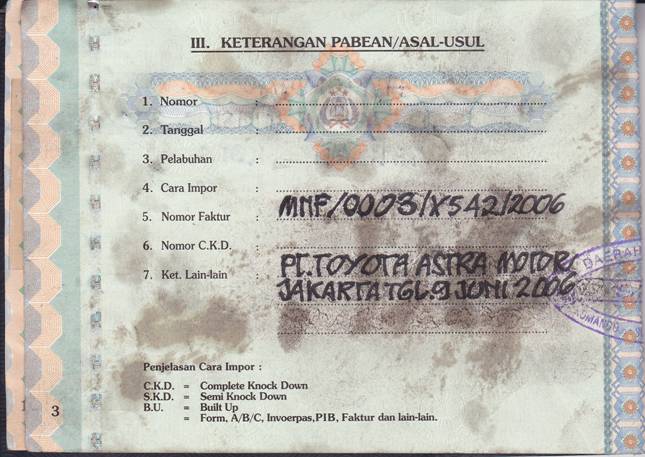 III. KETERANGAN PABEAN/ASAL-USUL
1. Nomor :
2. Tanggal :
3. Pelabuhan :
4. Cara Impor :
5. Nomor Faktur : MNF/0003/X542/2006
6. Nomor C.K.D. :
7. Ket. Lain-lain : PT.TOYOTA ASTRA MOTOR
JAKARTA TGL.9 JUNI 2006
DAERAH
KOMANDO
Penjelasan Cara Impor :
C.K.D. = Complete Knock Down
S.K.D. = Semi Knock Down
B.U. = Built Up
= Form, A/B/C, Invoerpas,PIB, Faktur dan lain-lain.
3